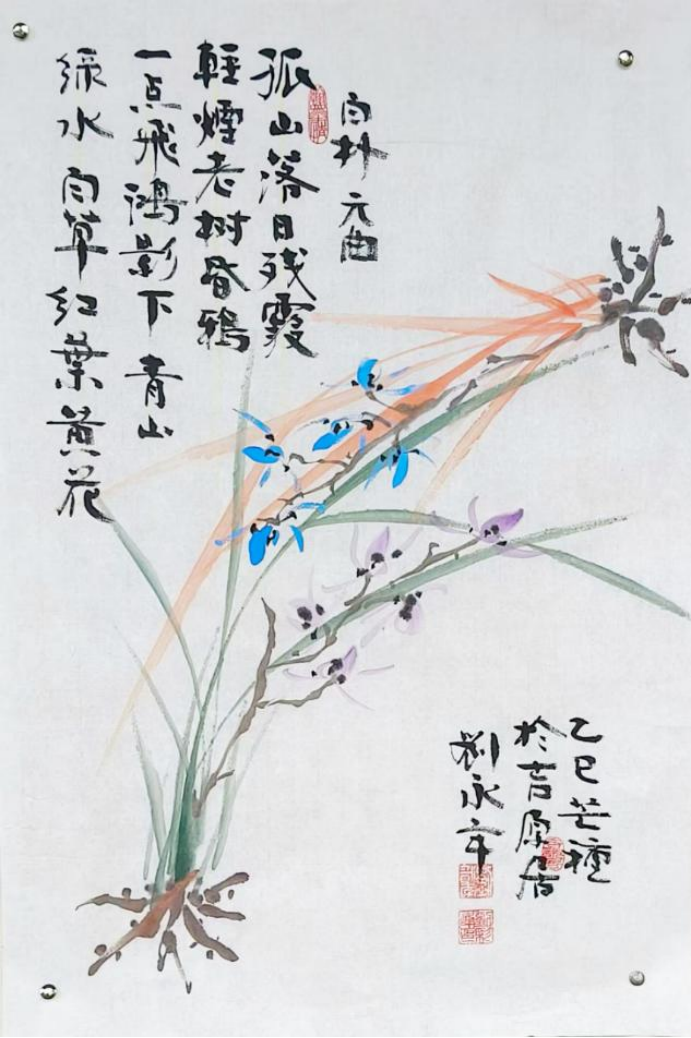 白朴元曲
孤山落日残霞
輕煙老树昏鴉
一点飛鴻影下青山
绿水白草红葉黄花
乙巳芒種
於吉原居
劉永年